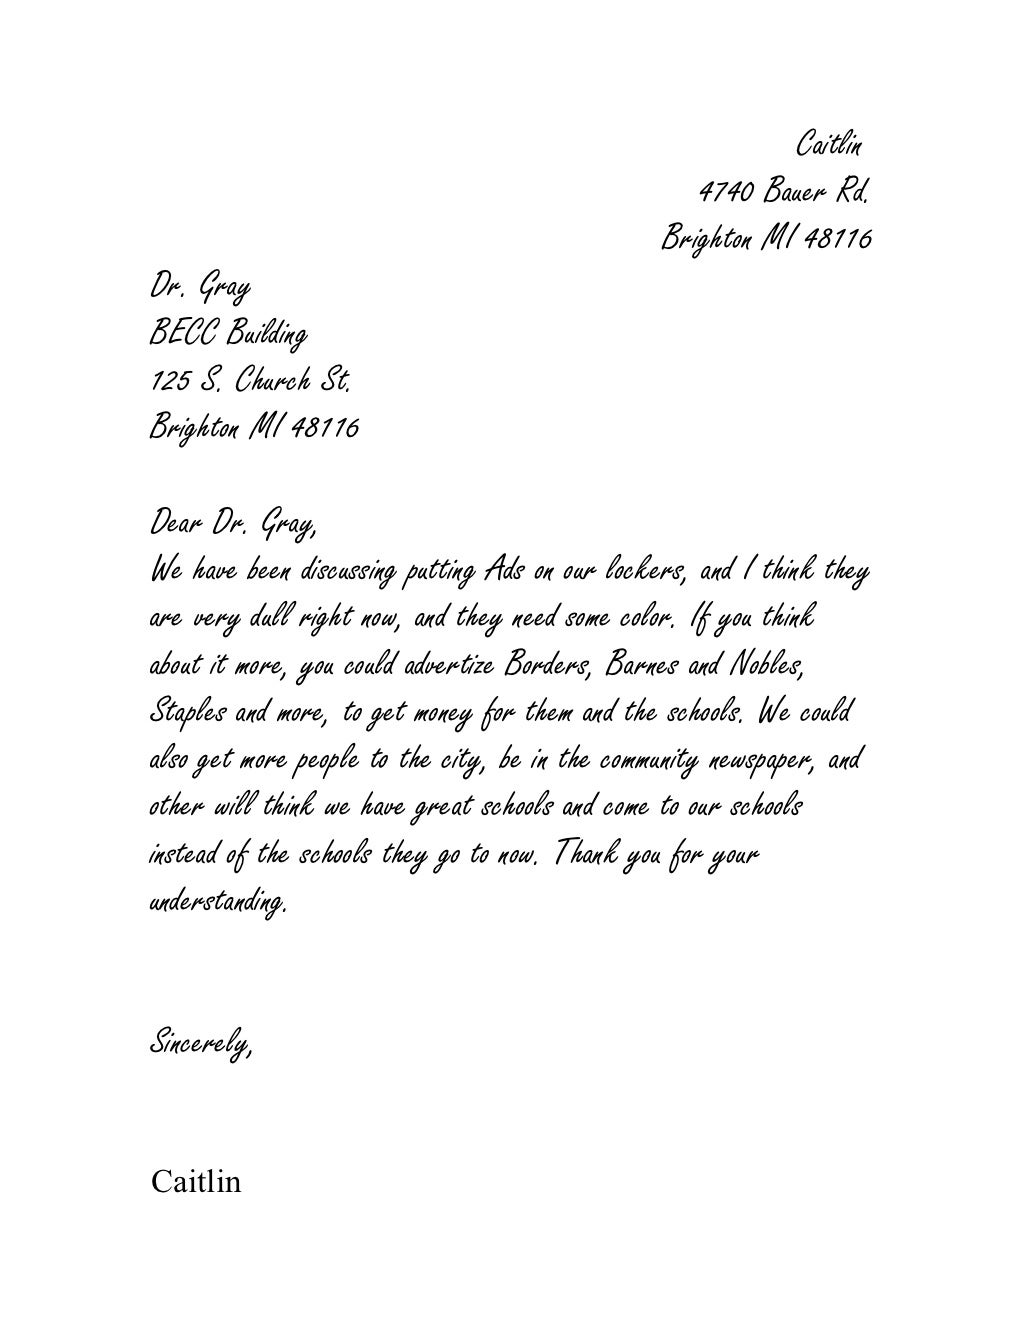 Caitlin
4740 Bauer Rd.
Brighton MI 48116
Dr. Gray
BECC Building
125 S. Church St.
Brighton MI 48116
Dear Dr. Gray,
We have been discussing putting Ads on our lockers, and I think they
are very dull right now, and they need some color. If you think
about it more, you could advertize Borders, Barnes and Nobles,
Staples and more, to get money for them and the schools. We could
also get more people to the city, be in the community newspaper, and
other will think we have great schools and come to our schools
instead of the schools they go to now. Thank you for your
understanding.
Sincerely,
Caitlin